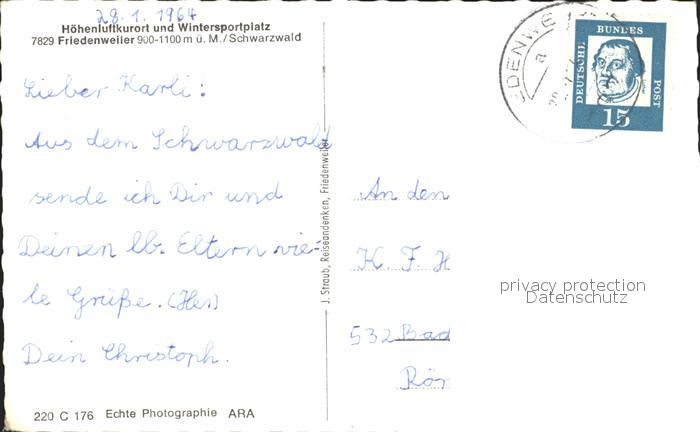 28.1.1964
Höhenluftkurort und Wintersportplatz
7829 Friedenweiler 900-1100 m ü. M./Schwarzwald
Lieber Karli!
Aus dem Schwarzwald
sende ich Dir und
Deinen lb. Eltern vie-
le Grüße.
Dein Christoph.
220 C 176 Echte Photographie ARA
J. Straub, Reiseandenken, Friedenweiler
DEUTSCHE BUNDESPOST
15
EDENWE
a
An den
K. F. H
532 Bad
Röm
privacy protection
Datenschutz